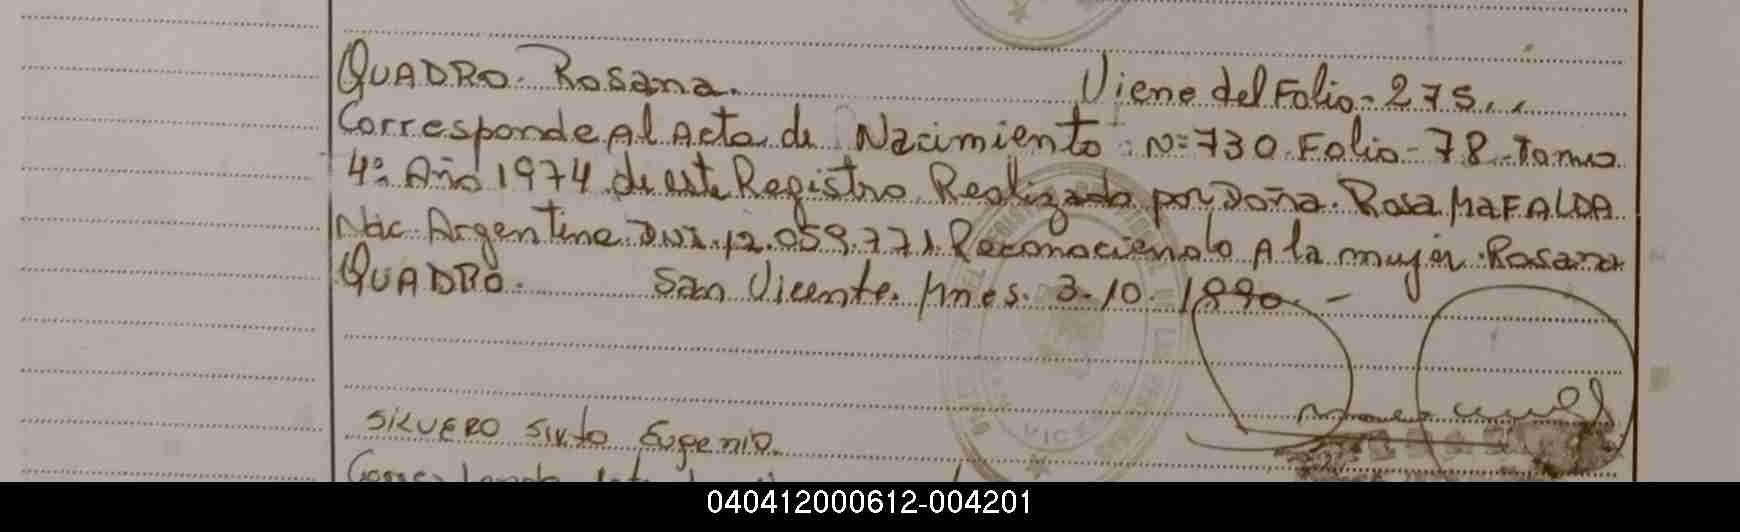 QUADRO. Rosana. Viene del Folio-275..
Corresponde Al Acta de Nacimiento N=730. Folio-78. Tomo
4º. Año 1974 de este Registro Realizada por Doña. Rosa MAFALDA
Nac. Argentina DNI. 12.059.771. Reconociendo A la mujer. Rosana
QUADRO. San Vicente. Mnes. 3-10. 1990.-
SILVERO Sixto Eugenio.
040412000612-004201